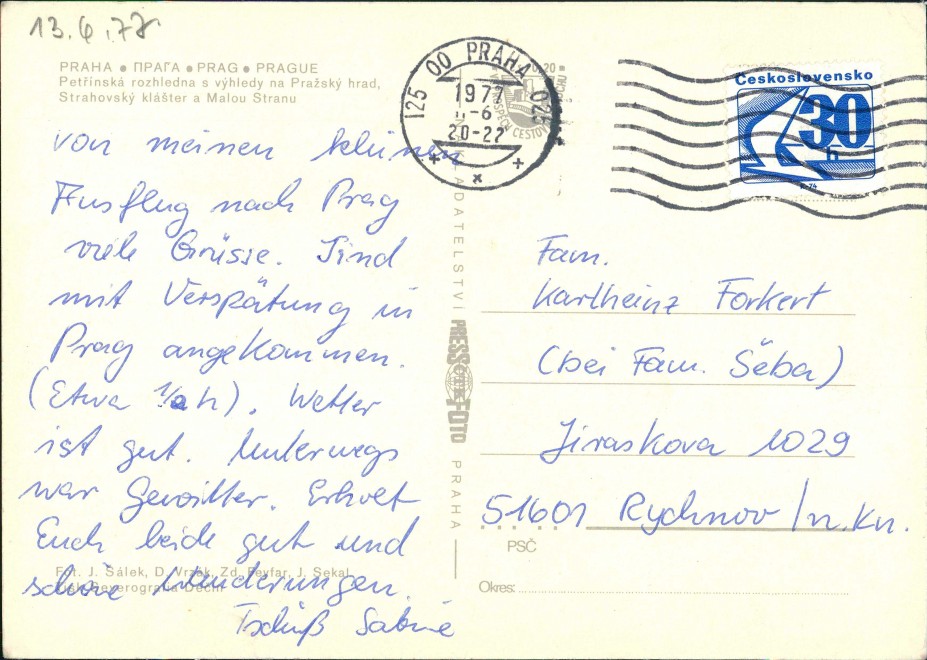 13.6.77
PRAHA ● ПРАГА ● PRAG ● PRAGUE
Petřínská rozhledna s výhledy na Pražský hrad,
Strahovský klášter a Malou Stranu
von meinen kleinen
Ausflug nach Prag
viele Grüsse. Sind
mit Verspätung in
Prag angekommen.
(Etwa 1/2 h). Wetter
ist gut. Unterwegs
war Gewitter. Erholt
Euch beide gut und
schöne Wanderungen.
Tschüß Sabine
Fot. J. Šálek, D. Vrzák, Zd. Feyfar, J. Sekal
Děčín
125 00 PRAHA 025
1977
-6
20-22
Československo
30
h
PRESSFOTO
PRAHA
Fam.
Karlheinz Forkert
(bei Fam. Šeba)
Jiraskova 1029
51601 Rychnov /n.Kn.
PSČ
Okres: